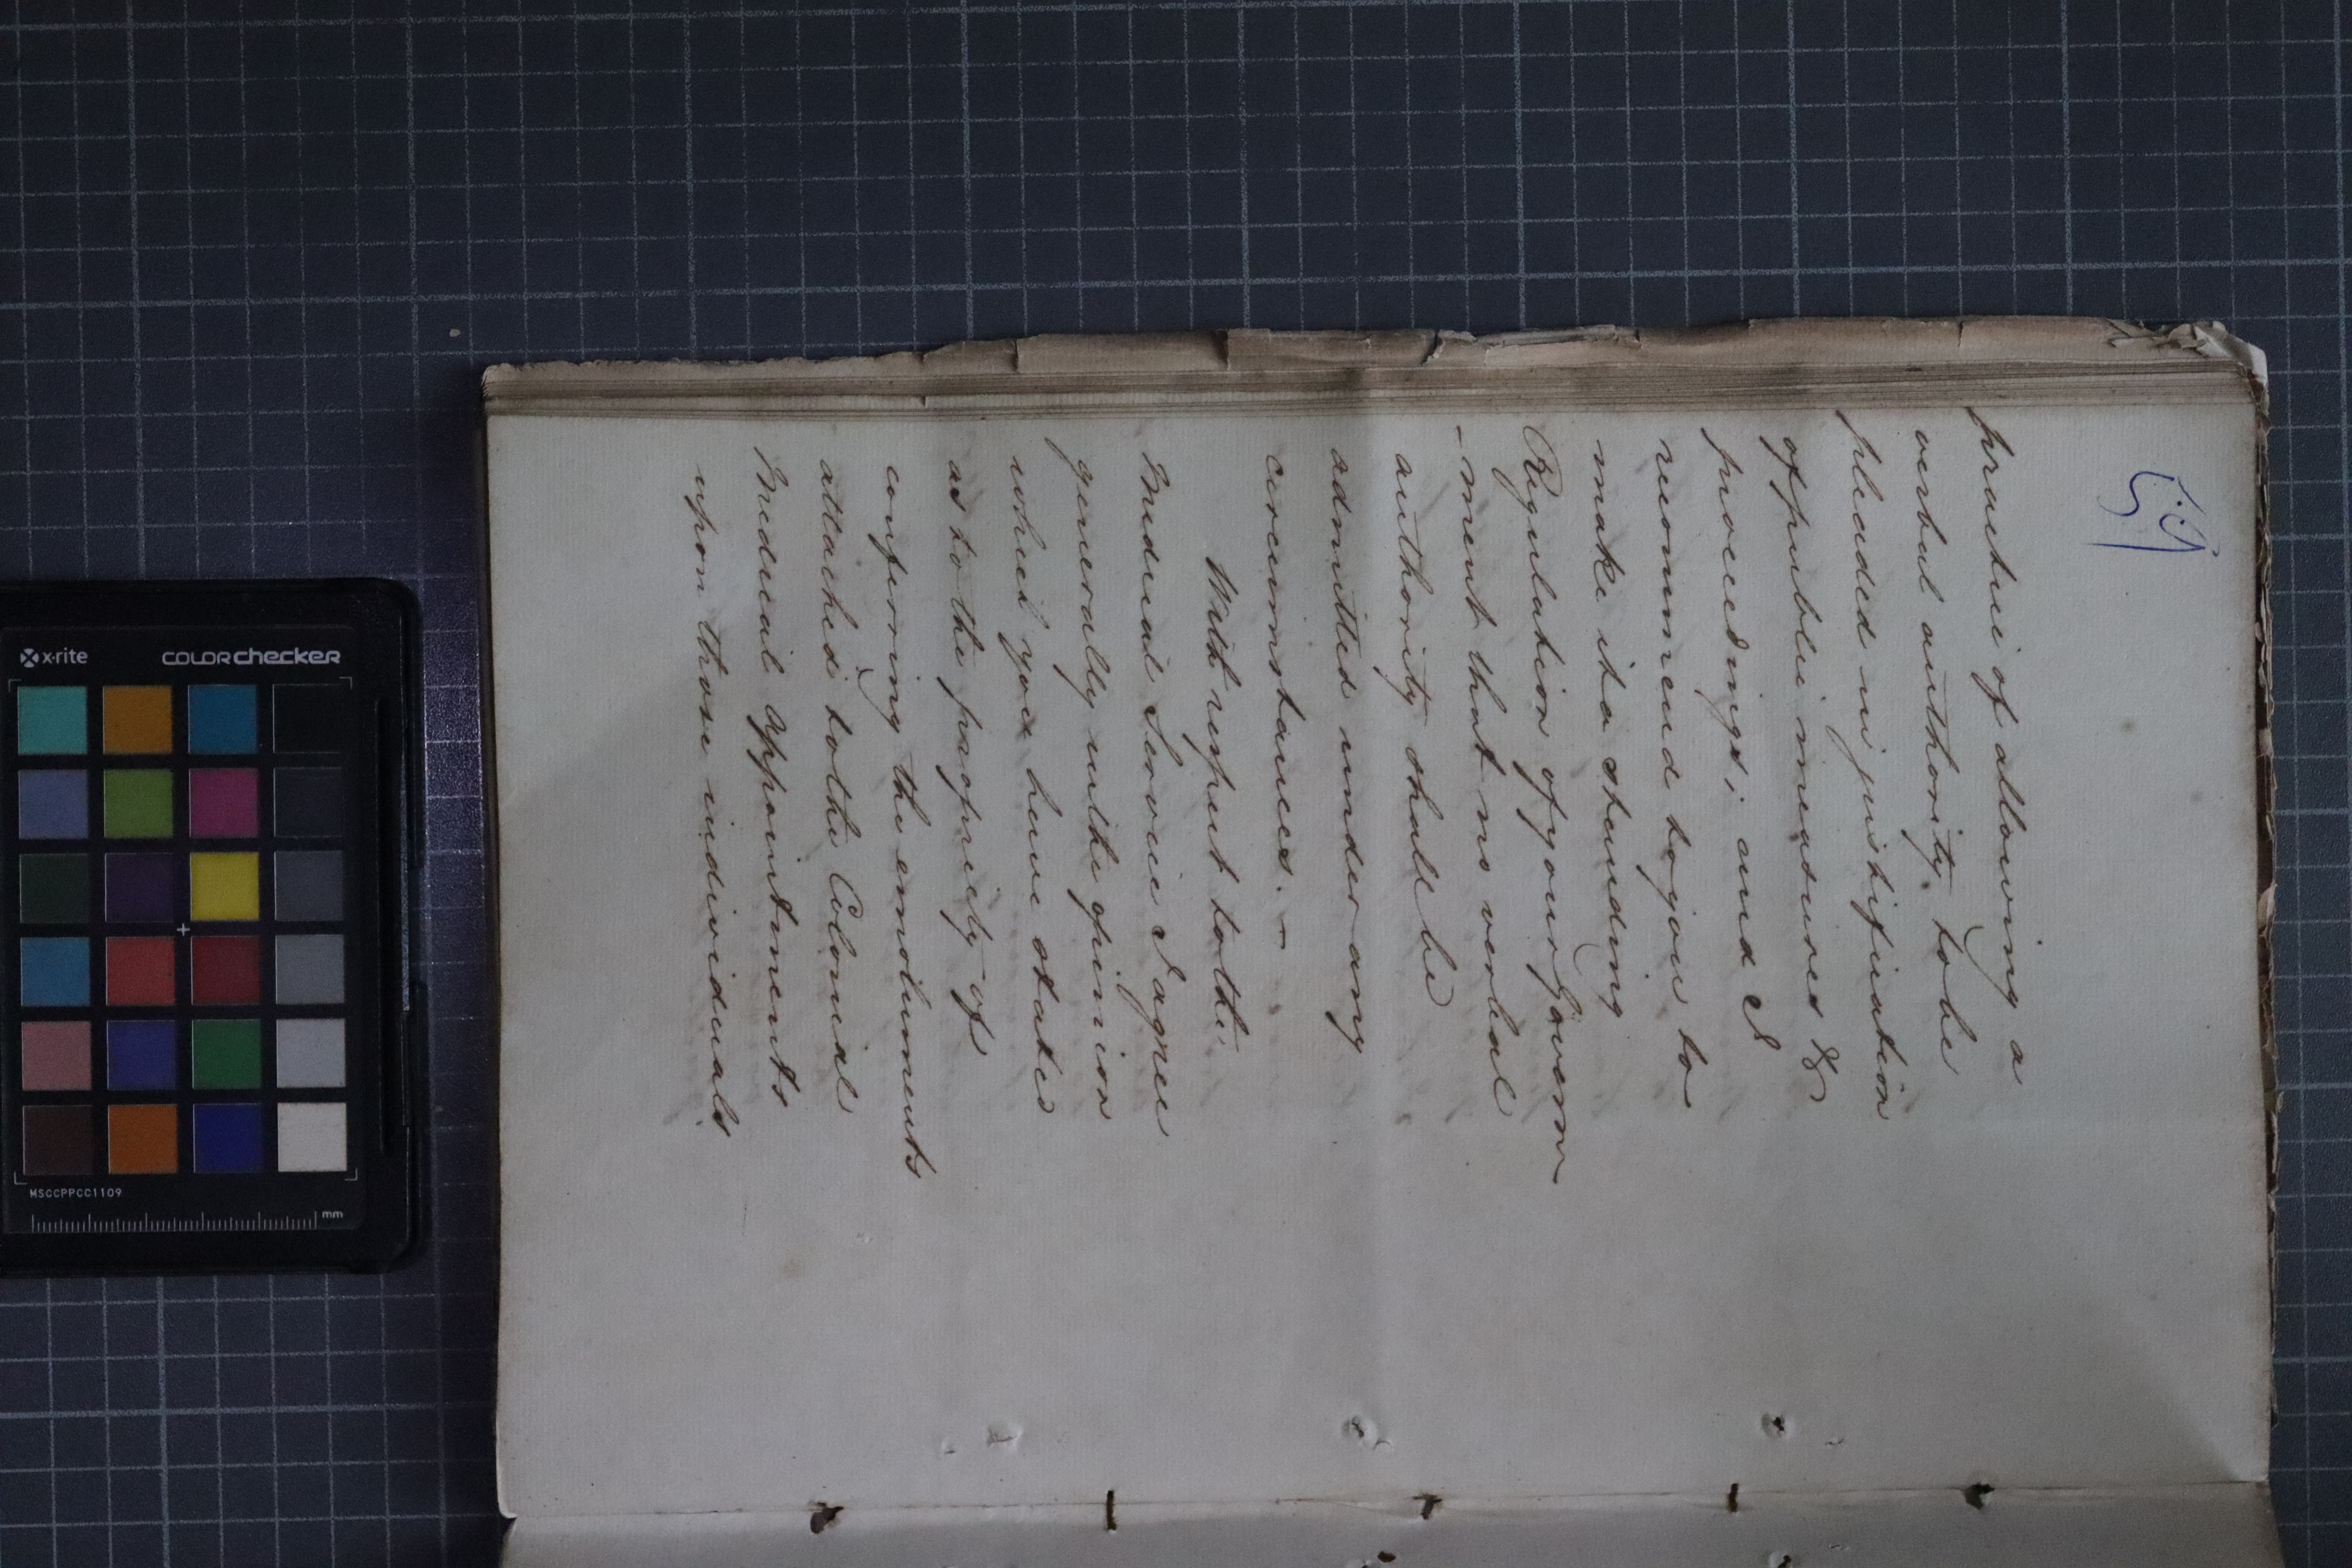 59
practice of allowing a
verbal authority to be
pleaded in justification
of public measures &
proceedings; and I
recommend to you to
make it a standing
Regulation of your Govern
-ment that no verbal
authority shall be
admitted under any
circumstances. –
With respect to the
Medical Service I agree
generally in the opinion
which you have stated
as to the propriety of
conferring the emoluments
attached to the Colonial
Medical Appointments
upon those individuals
x-rite colorchecker
MSCCPPCC1109
mm